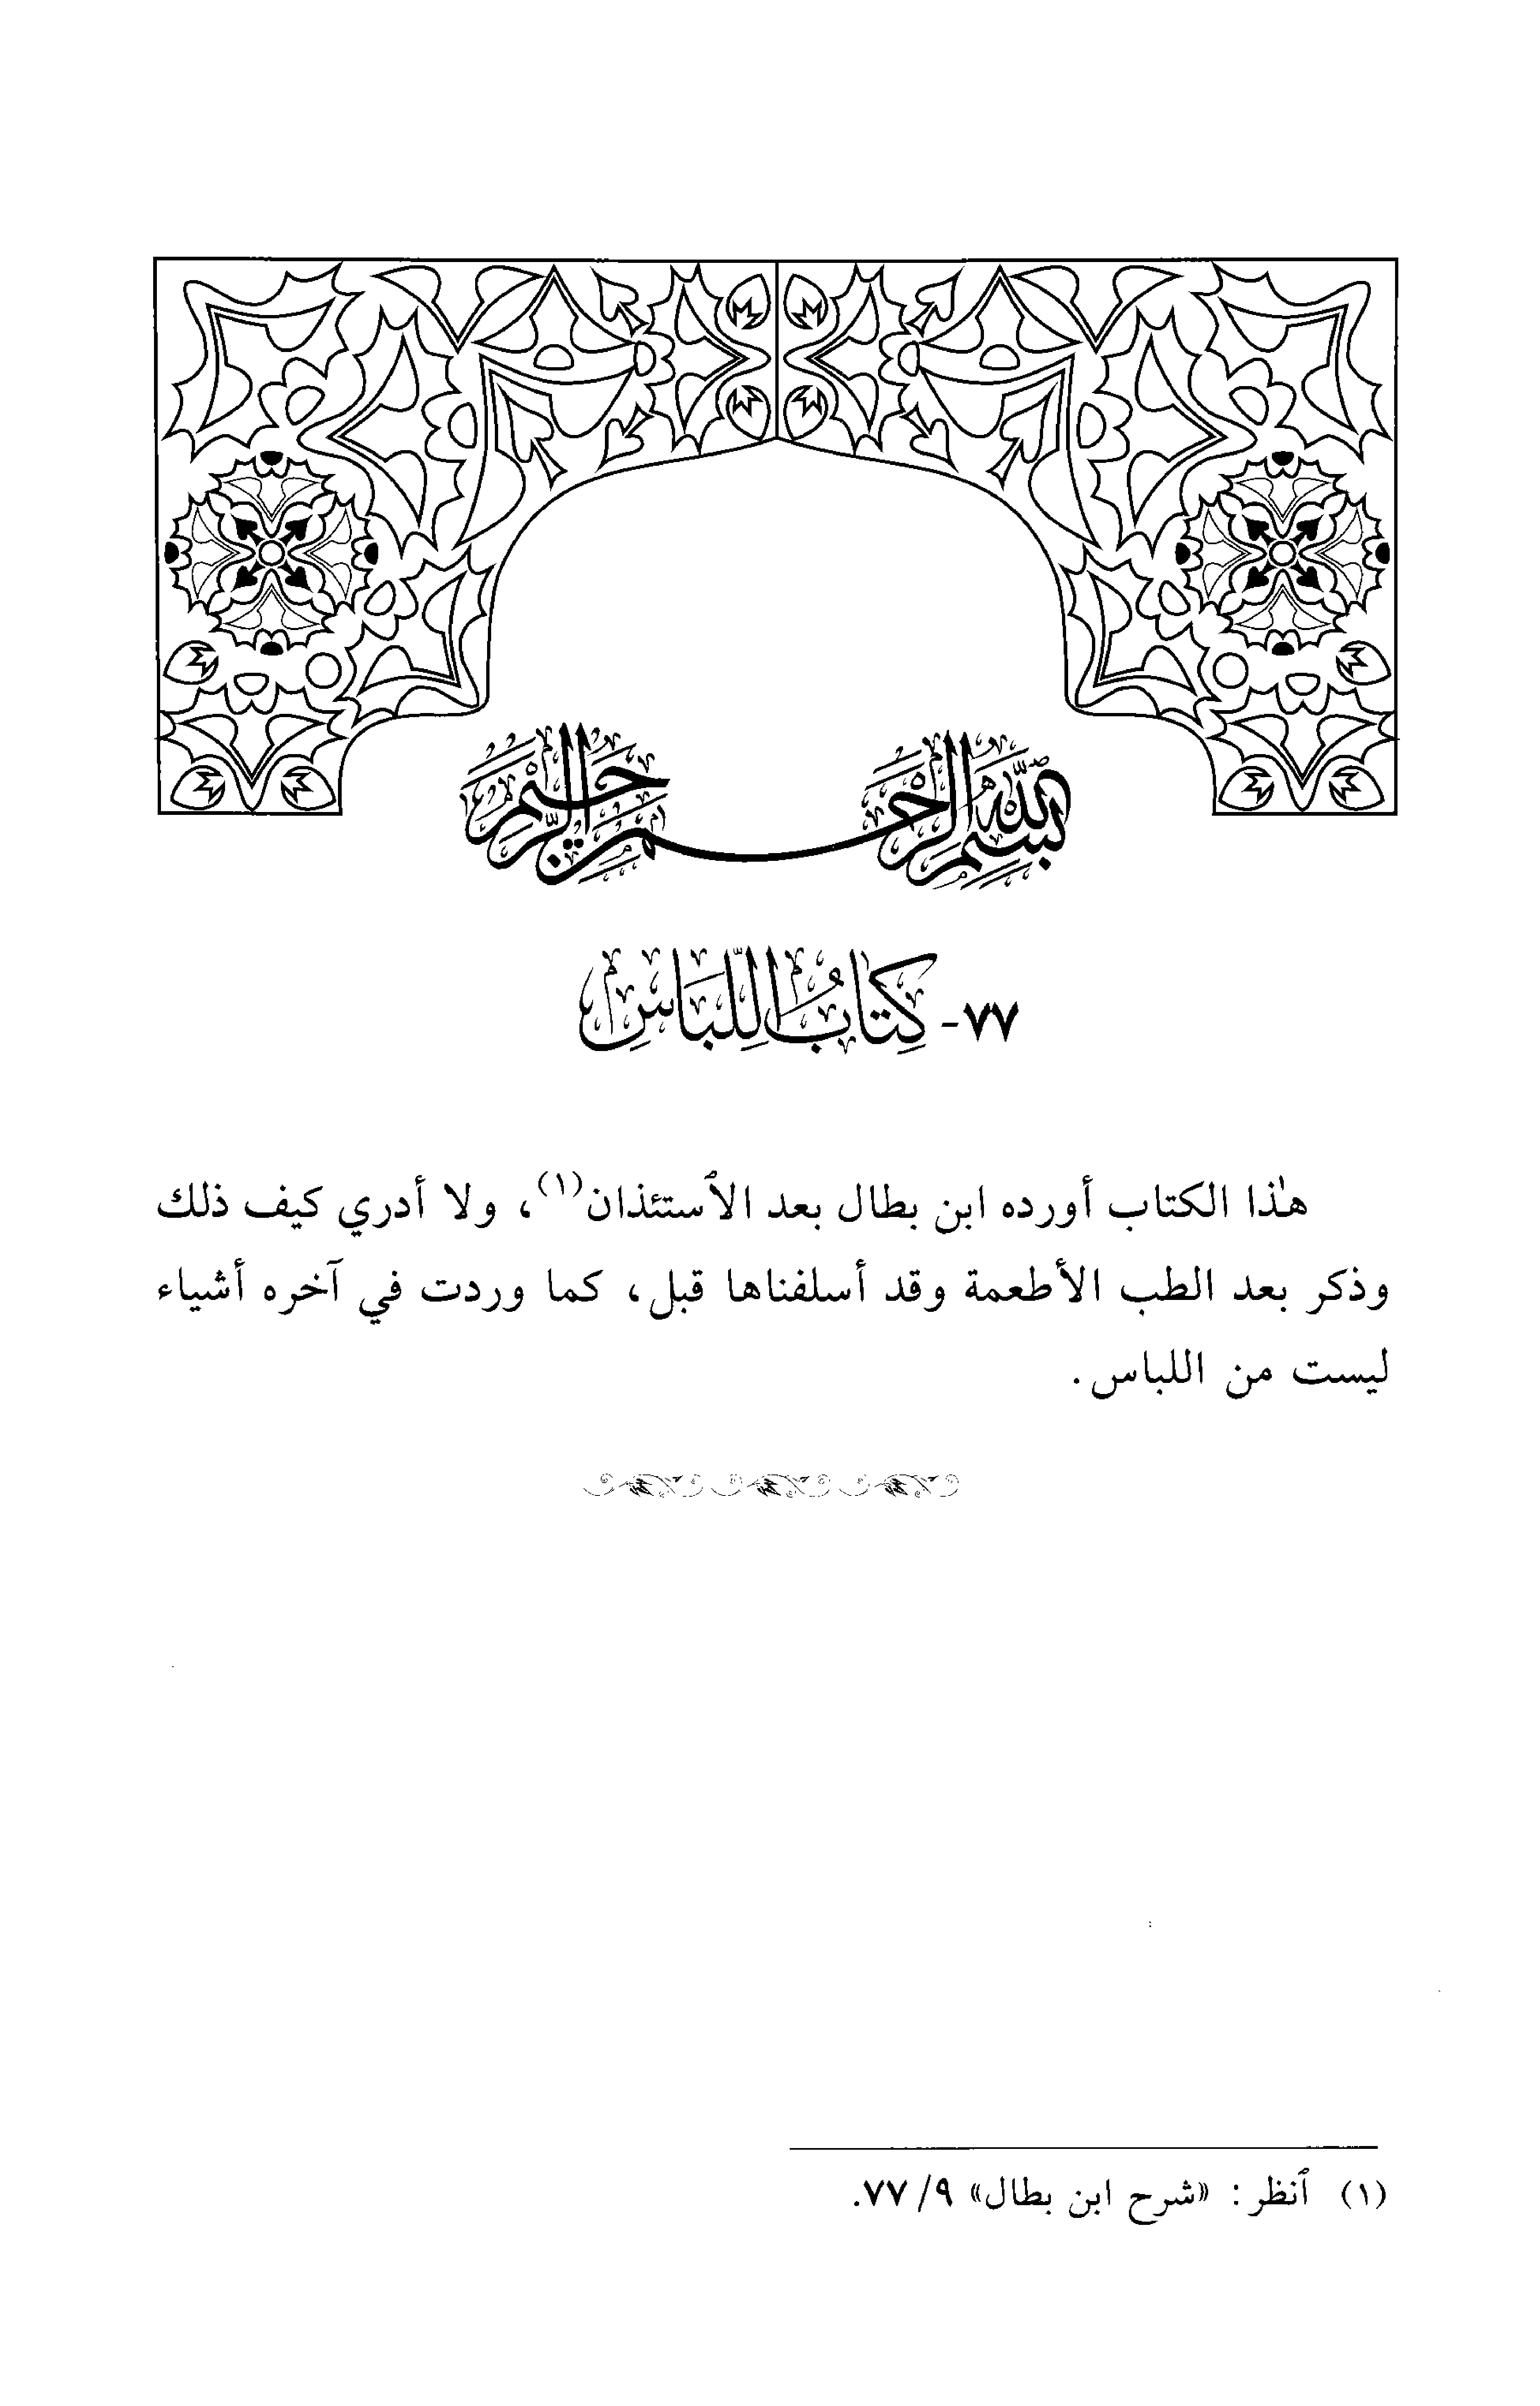 بسم الله الرحمن الرحيم
٧٧- كِتَابُ اللِّبَاسِ
هذا الكتاب أورده ابن بطال بعد الاستئذان(١)، ولا أدري كيف ذلك
وذكر بعد الطب الأطعمة وقد أسلفناها قبل، كما وردت في آخره أشياء
ليست من اللباس.
(١) ٱنظر: «شرح ابن بطال» ٩/ ٧٧.